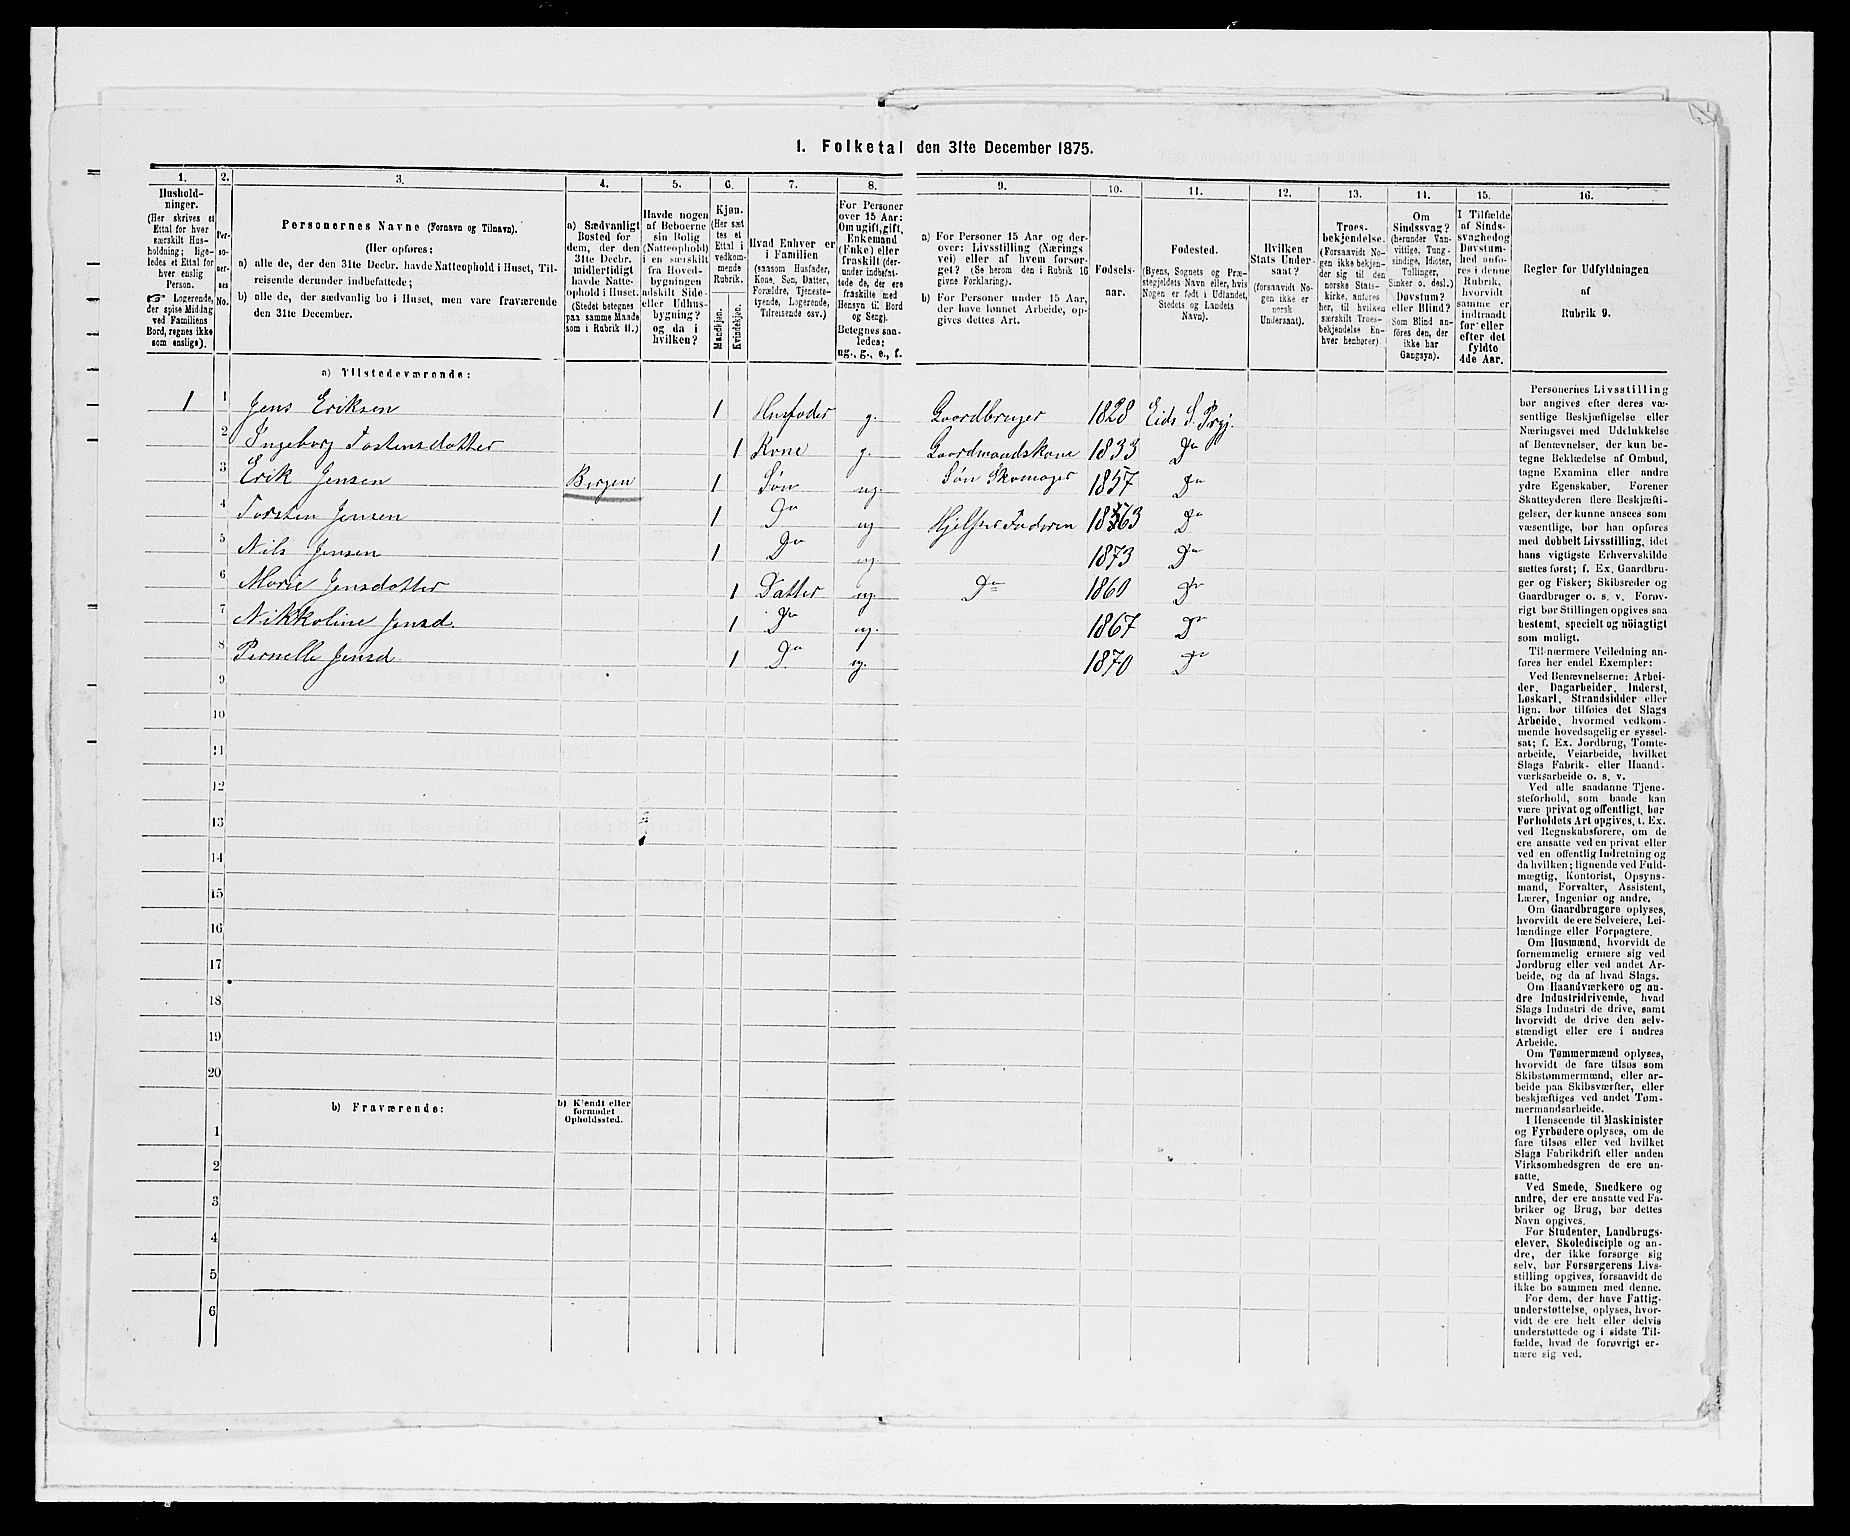 1. Folketal den 31te December 1875.
1. 2. 3. 4. 5. 6. 7. 8. 9. 10. 11. 12. 13. 14. 15. 16.
Hushold-
ninger.
(Her skrives et
Ettal for hver
særskilt Hus-
holdning; lige-
ledes et Ettal for
hver enslig
Person.
☞ Logerende,
der spise Middag
ved Familiens
Bord, regnes ikke
som enslige).
Per-
so-
ner-
nes
No.
Personernes Navne (Fornavn og Tilnavn).
(Her opføres:
a) alle de, der den 31te Decbr. havde Natteophold i Huset, Til-
reisende derunder indbefattede;
b) alle de, der sædvanlig bo i Huset, men vare fraværende
den 31te December.
a) Sædvanligt
Bosted for
dem, der den
31te Decbr.
midlertidigt
havde Natte-
ophold i Huset.
(Stedet betegnes
paa samme Maade
som i Rubrik 11.)
Havde nogen
af Beboerne
sin Bolig
(Natteophold)
i en særskilt
fra Hoved-
bygningen
adskilt Side-
eller Udhus-
bygning?
og da i
hvilken?
Kjøn.
(Her sæt
tes et
Ettal i
vedkom-
mende
Rubrik.
Mandkjøn.
Kvindekjøn.
Hvad Enhver er
i Familien
(saasom Husfader,
Kone, Søn, Datter,
Forældre, Tjeneste-
tyende, Logerende,
Tilreisende osv.)
For Personer
over 15 Aar:
Om ugift, gift,
Enkemand
(Enke) eller
fraskilt (der-
under indbefat-
tede de, der ere
fraskilte med
Hensyn til Bord
og Seng).
Betegnes saa-
ledes:
ug., g., e., f.
a) For Personer 15 Aar og der-
over: Livsstilling (Nærings
vei) eller af hvem forsør-
get? (Se herom den i Rubrik 16
givne Forklaring).
b) For Personer under 15 Aar,
der have lønnet Arbeide, op-
gives dettes Art.
Fødsels-
aar.
Fødested.
(Byens, Sognets og Præ-
stegjeldets Navn eller, hvis
Nogen er født i Udlandet,
Stedets og Landets
Navn).
Hvilken
Stats Under-
saat?
(forsaavidt No-
gen ikke er
norsk
Undersaat).
Troes-
bekjendelse.
(Forsaavidt No-
gen ikke bekjen-
der sig til den
norske Stats-
kirke, anføres
her, til hvilken
særskilt Troes-
bekjendelse En-
hver henhører).
Om
Sindssvag?
(herunder Van-
vittige, Tung-
sindige, Idioter,
Tullinger,
Sinker o. desl.)
Døvstum?
eller Blind?
(Som Blind an-
føres den, der
ikke har
Gangsyn).
I Tilfælde
af Sinds-
svaghed og
Døvstum-
hed anfø-
res i denne
Rubrik,
hvorvidt
samme er
indtraadt
før eller
efter det
fyldte
4de Aar.
Regler for Udfyldningen
af
Rubrik 9.
a) Tilstedeværende:
1 1 Jens Eriksen 1 Husfader g. Gaardbruger 1828 Eids S. Prgj.
2 Ingeborg Tostensdatter 1 Kone g. Gaardmandskone 1833 Do
3 Erik Jensen Bergen 1 Søn ug. Søn Skomager 1857 Do
4 Torsten Jensen 1 Do ug Hjelper Faderen 1863 Do
5 Nils Jensen 1 Do ug. 1873 Do
6 Marie Jensdatter 1 Datter ug. Do 1860 Do
7 Nikkoline Jensd. 1 Do ug. 1867 Do
8 Pernelle Jensd. 1 Do ug. 1870 Do
9
10
11
12
13
14
15
16
17
18
19
20
b) Fraværende:
b) Kjendt eller
formodet
Opholdssted.
1
2
3
4
5
6
Personernes Livsstilling
bør angives efter deres væ-
sentlige Beskjæftigelse eller
Næringsvei med Udelukkelse
af Benævnelser, der kun be-
tegne Beklædelse af Ombud,
tagne Examina eller andre
ydre Egenskaber. Forener
Skatteyderen flere Beskjæfti-
gelser, der kunne ansees som
væsentlige, bør han opføres
med dobbelt Livsstilling, idet
hans vigtigste Erhvervskilde
sættes først; f. Ex. Gaardbru-
ger og Fisker; Skibsreder og
Gaardbruger o. s. v. Forøv-
rigt bør Stillingen opgives saa
bestemt, specielt og nöiagtigt
som muligt.
Til nærmere Veiledning an-
føres her endel Exempler:
Ved Benævnelserne: Arbei-
der, Dagarbeider, Inderst,
Løskarl, Strandsidder eller
lign. bør tilføies det Slags
Arbeide, hvormed vedkom-
mende hovedsagelig er syssel-
sat; f. Ex. Jordbrug, Tomte-
arbeide, Veiarbeide, hvilket
Slags Fabrik- eller Haand-
værksarbeide o. s. v.
Ved alle saadanne Tjene-
steforhold, som baade kan
være privat og offentligt, bør
Forholdets Art opgives, t. Ex.
ved Regnskabsførere, om de
ere ansatte ved en privat eller
ved en offentlig Indretning og
da hvilken; lignende ved Fuld-
mægtig, Kontorist, Opsyns-
mand, Forvalter, Assistent,
Lærer, Ingeniør og andre.
Om Gaardbrugere oplyses,
hvorvidt de ere Selveiere, Lei-
lændinge eller Forpagtere.
Om Husmænd, hvorvidt de
fornemmelig ernære sig ved
Jordbrug eller ved andet Ar-
beide, og da af hvad Slags.
Om Haandværkere og an-
dre Industridrivende, hvad
Slags Industri de drive, samt
hvorvidt de drive den selv-
stændigt eller ere i andres
Arbeide.
Om Tømmermænd oplyses,
hvorvidt de fare tilsøs som
Skibstømmermænd, eller ar-
beide paa Skibsværfter, eller
beskjæftiges ved andet Tøm-
mermandsarbeide.
I Henseende til Maskinister
og Fyrbødere oplyses, om de
fare tilsøs eller ved hvilket
Slags Fabrikdrift eller anden
Virksomhedsgren de ere an-
satte.
Ved Smede, Snedkere og
andre, der ere ansatte ved Fa-
briker og Brug, bør dettes
Navn opgives.
For Studenter, Landbrugs-
elever, Skoledisciple og an-
dre, der ikke forsørge sig
selv, bør Forsørgerens Livs-
stilling opgives, forsaavidt de
ikke bo sammen med denne.
For dem, der have Fattig-
understøttelse, oplyses, hvor-
vidt de ere helt eller delvis
understøttede og i sidste Til-
fælde, hvad de forøvrigt er-
nære sig ved.